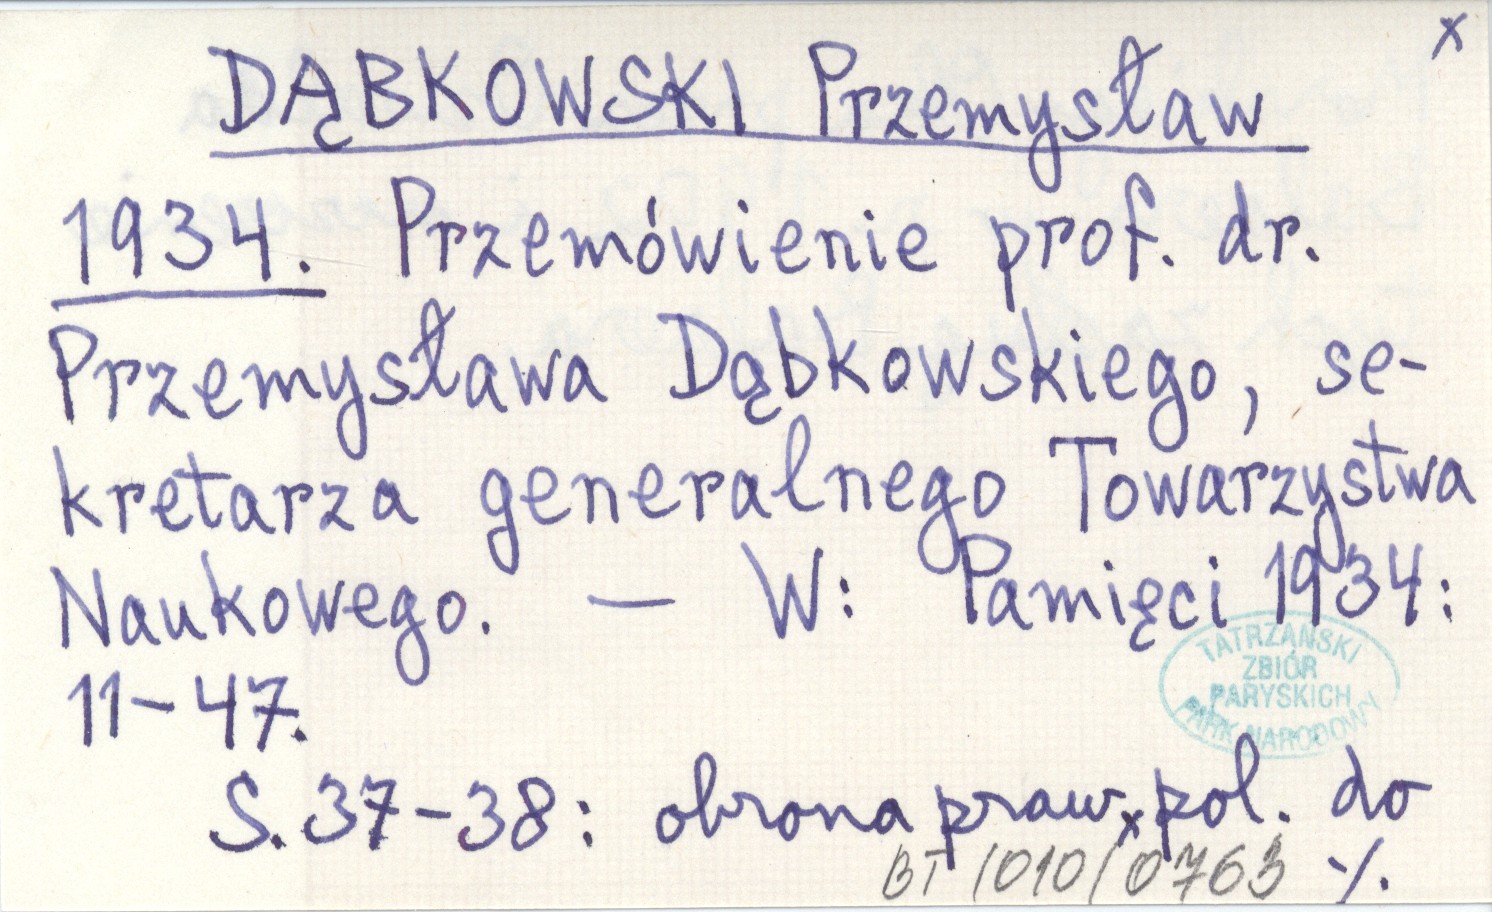 x
DĄBKOWSKI Przemysław
1934. Przemówienie prof. dr.
Przemysława Dąbkowskiego, se-
kretarza generalnego Towarzystwa
Naukowego. — W: Pamięci 1934:
11-47.
TATRZAŃSKI
ZBIÓR
PARYSKICH
PARK NARODOWY
S. 37-38: obrona praw pol. do
x
BT/010/0763 ·/.